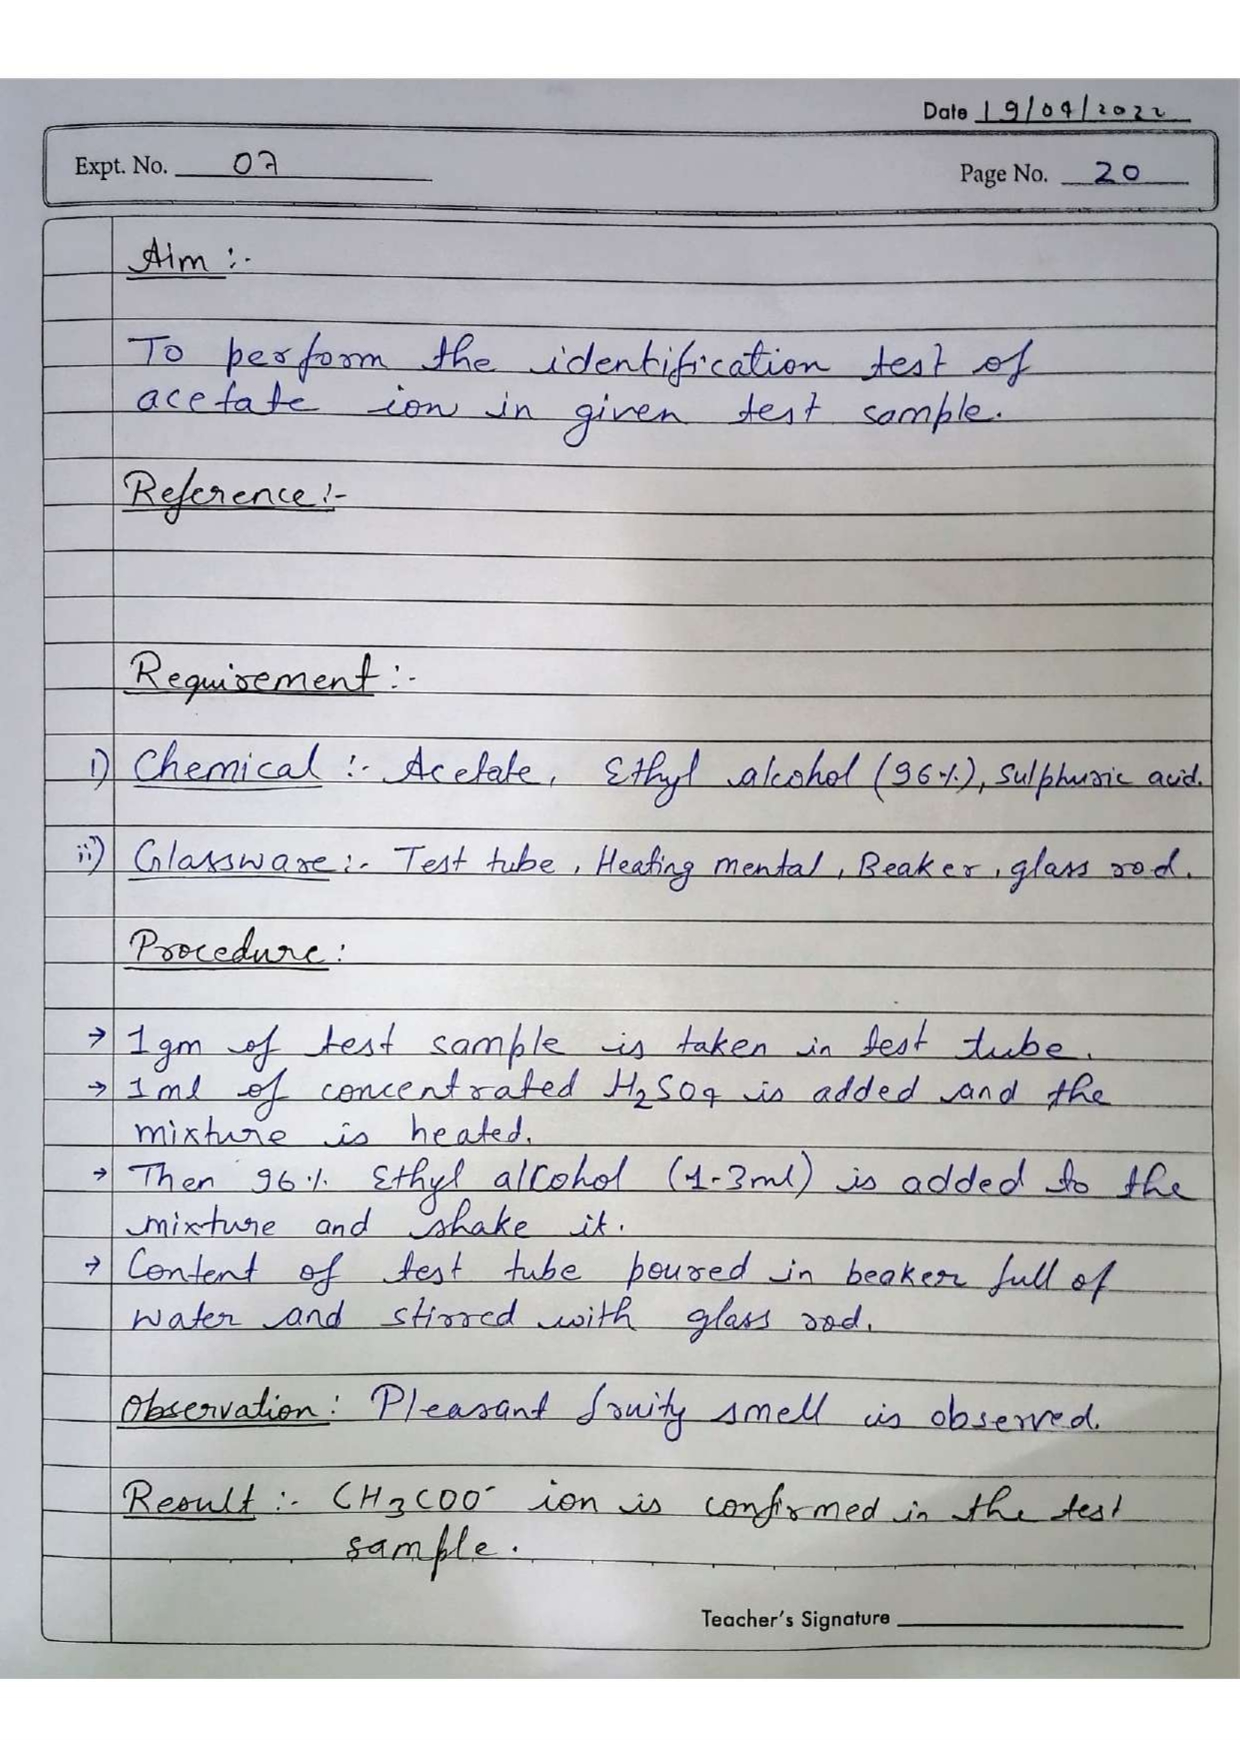 Date 19/04/2022
Expt. No. 07
Page No. 20
Aim :-
To perform the identification test of
acetate ion in given test sample.
Reference :-
Requirement :-
i) Chemical :- Acetate, Ethyl alcohol (96%), Sulphuric acid.
ii) Glassware :- Test tube, Heating mental, Beaker, glass rod.
Procedure :
→ 1 gm of test sample is taken in test tube.
→ 1 ml of concentrated H₂SO₄ is added and the
mixture is heated.
→ Then 96% Ethyl alcohol (1-3ml) is added to the
mixture and shake it.
→ Content of test tube poured in beaker full of
water and stirred with glass rod.
Observation : Pleasant fruity smell is observed.
Result :- CH₃COO⁻ ion is confirmed in the test
sample.
Teacher's Signature